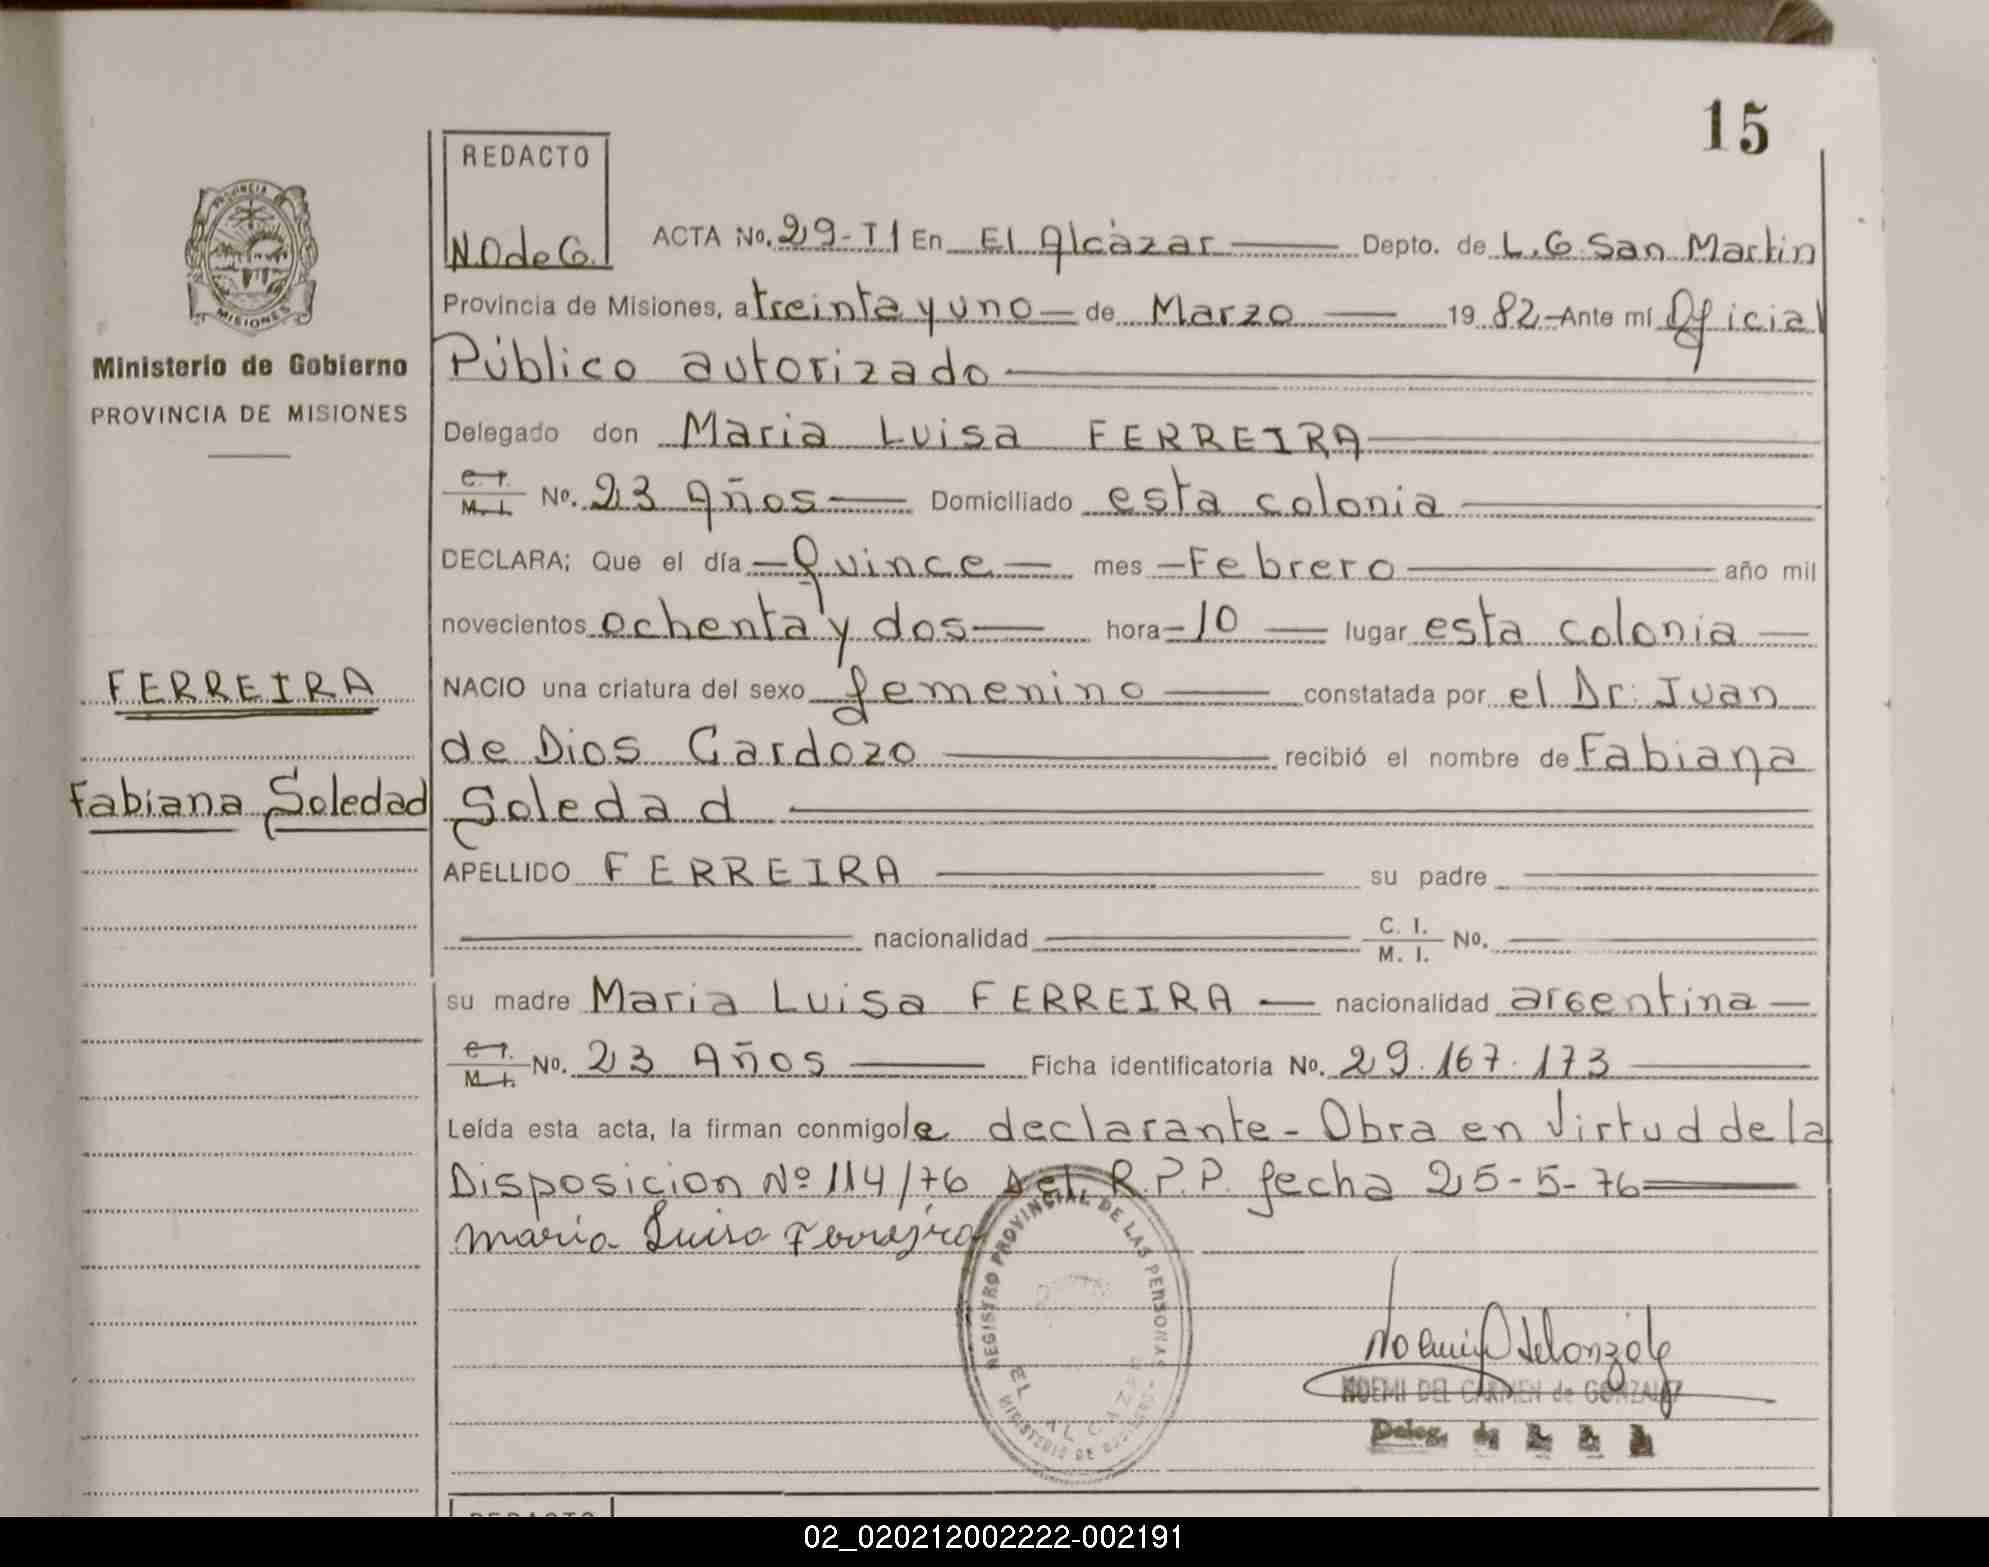 15
REDACTO
N.DdeG.
ACTA No. 29-T1 En El Alcázar Depto. de L.G. San Martin
Provincia de Misiones, a treinta y uno de Marzo 1982 Ante mí Oficial
Público autorizado
Delegado don Maria Luisa FERREIRA
C. I. M. I. No. 23 Años Domiciliado esta colonia
DECLARA; Que el día Quince mes Febrero año mil
novecientos ochenta y dos hora 10 lugar esta colonia
NACIO una criatura del sexo femenino constatada por el Dr. Juan
de Dios Cardozo recibió el nombre de Fabiana
Soledad
APELLIDO FERREIRA su padre
nacionalidad C. I. M. I. No.
su madre Maria Luisa FERREIRA nacionalidad argentina
C. I. M. I. No. 23 Años Ficha identificatoria No. 29.167.173
Leída esta acta, la firman conmigo la declarante - Obra en Virtud de la
Disposicion Nº 114/76 del R.P.P. fecha 25-5-76
Maria Luisa Ferrejra
PROVINCIA
MISIONES
Ministerio de Gobierno
PROVINCIA DE MISIONES
FERREIRA
Fabiana Soledad
REGISTRO PROVINCIAL DE LAS PERSONAS
EL ALCAZAR
MINISTERIO DE GOBIERNO
NOEMI DEL CARMEN de GONZALEZ
Deleg. de
REDACTO
02_020212002222-002191